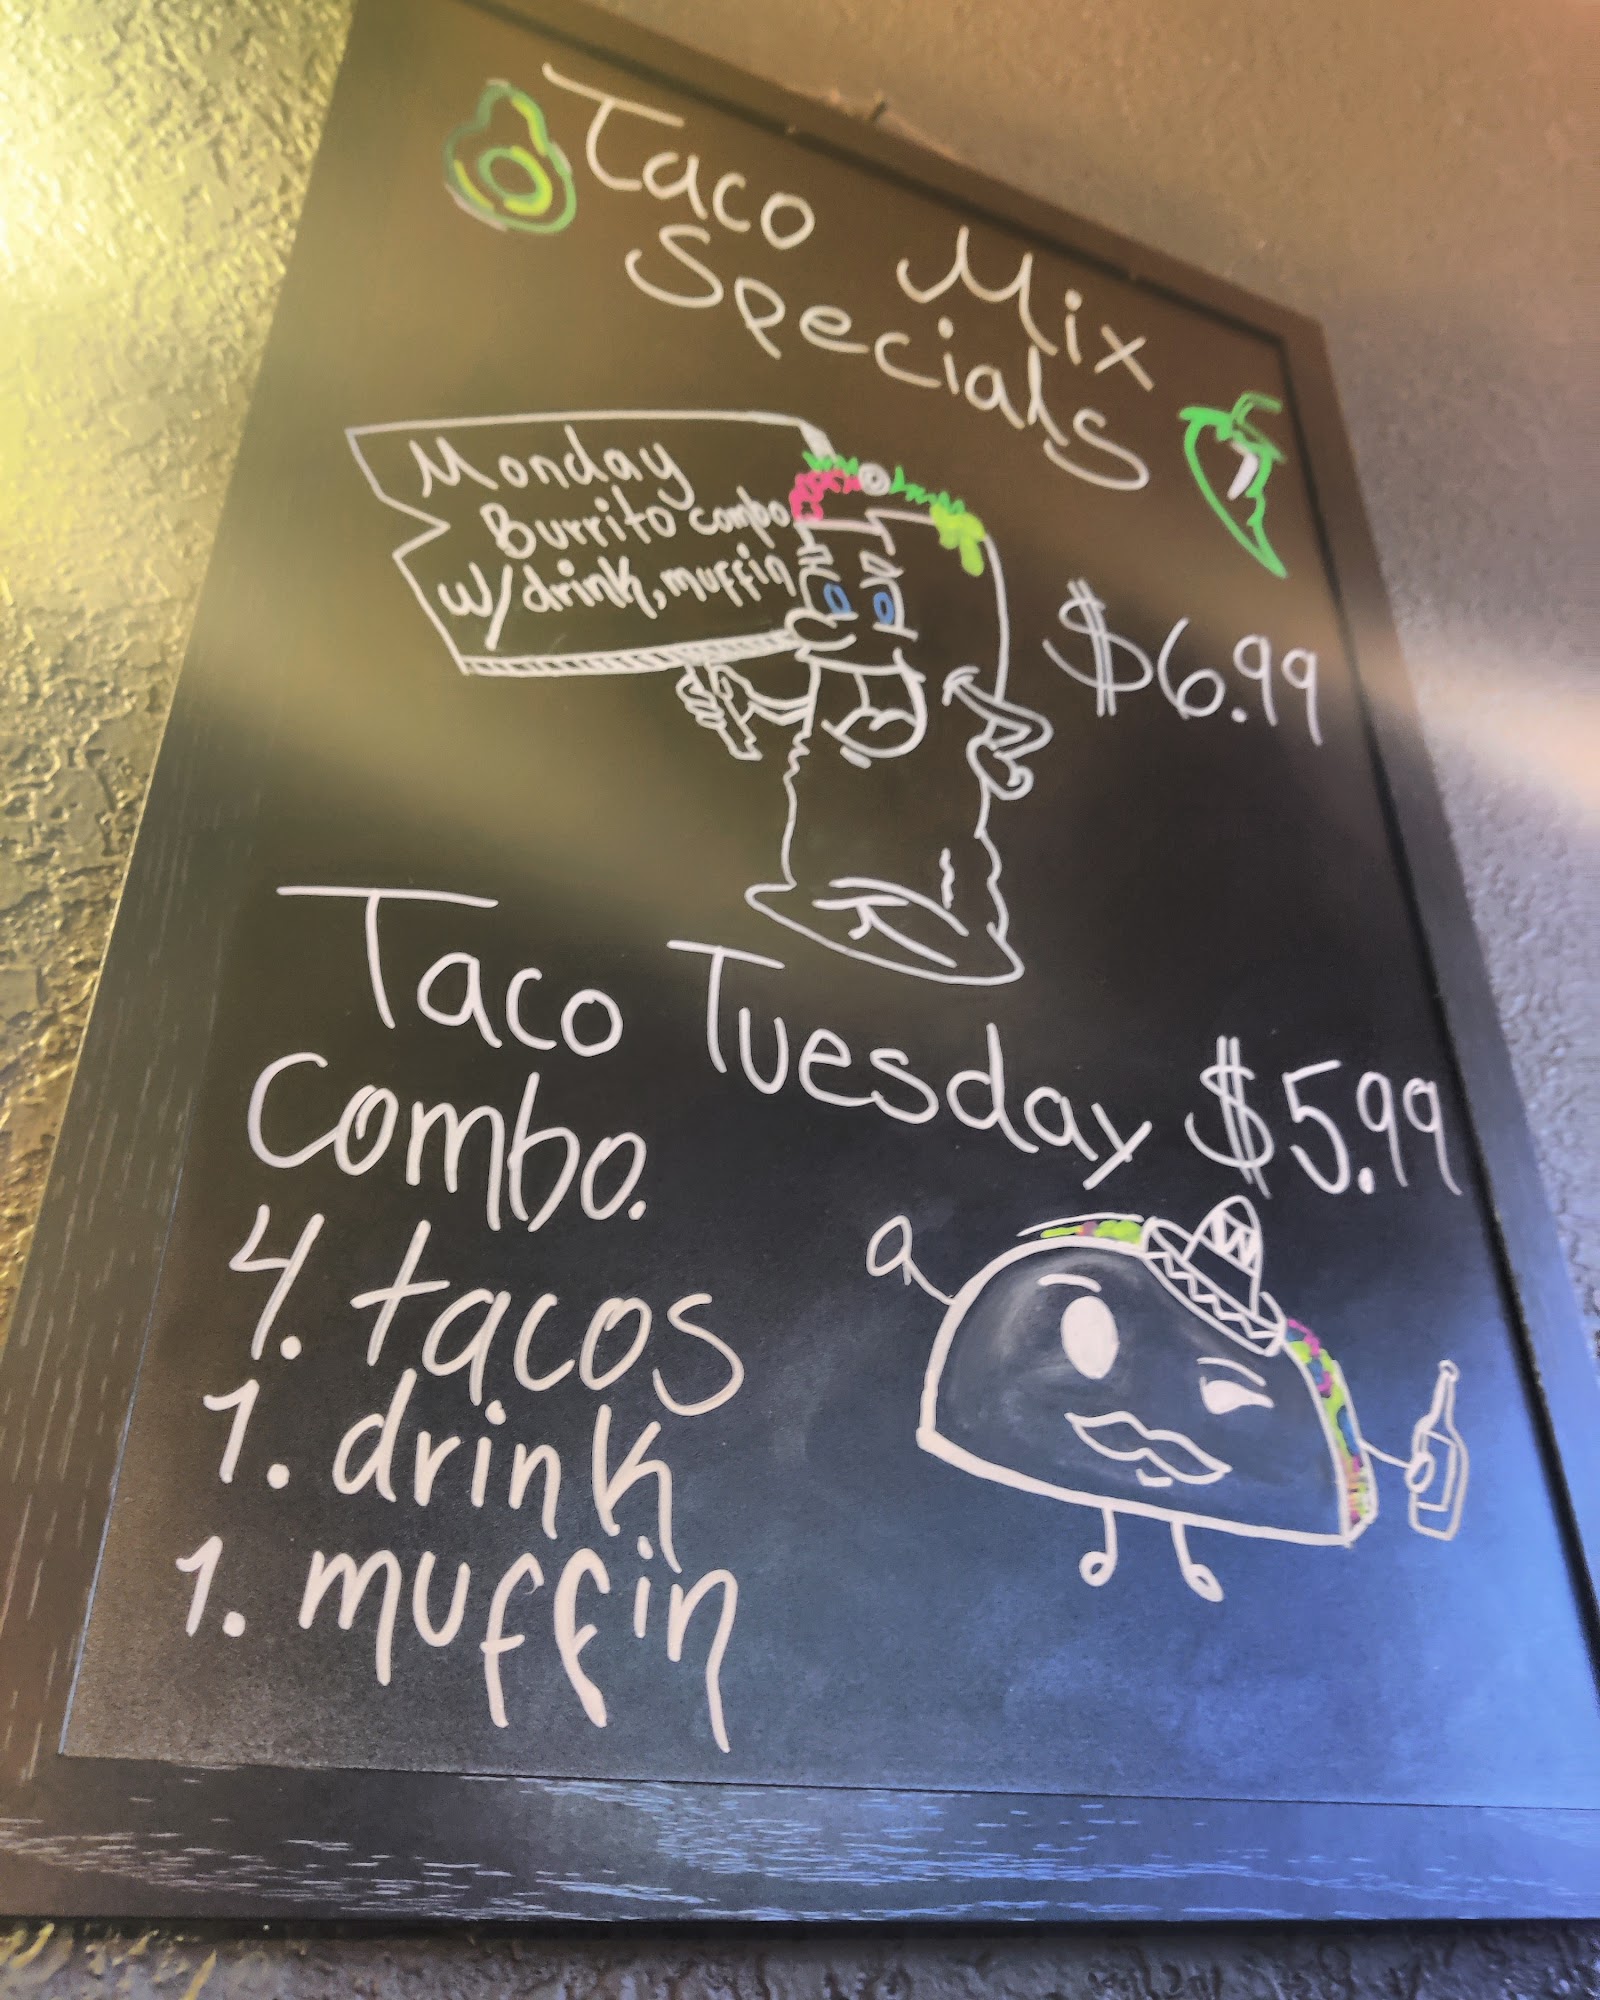 Taco Mix
Specials
Monday
Burrito combo
w/drink, muffin
$6.99
Taco Tuesday $5.99
Combo.
4. tacos
1. drink
1. muffin